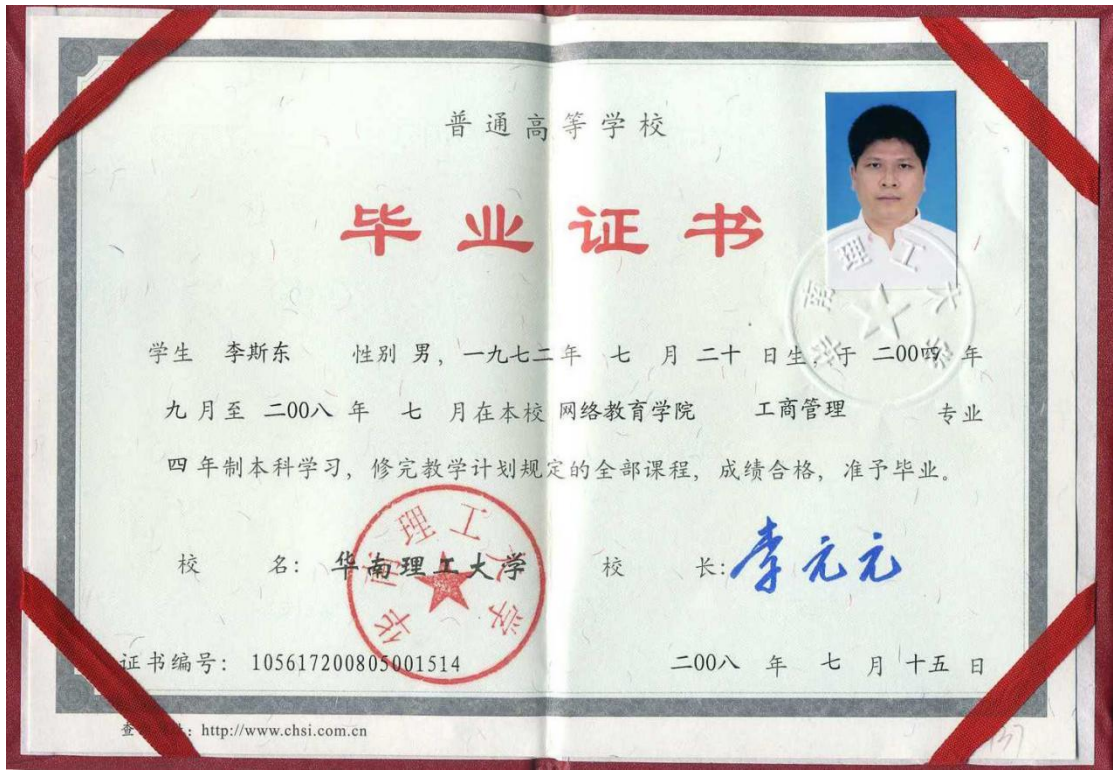 普通高等学校
毕业证书
学生 李斯东 性别 男，一九七二年 七 月 二十 日生，于 二00四 年
九 月至 二00八 年 七 月在本校 网络教育学院 工商管理 专业
四 年制本科学习，修完教学计划规定的全部课程，成绩合格，准予毕业。
校 名：华南理工大学 校 长：李元元
华南理工大学
华南理工大学
证书编号：105617200805001514 二00八 年 七 月 十五 日
查：http://www.chsi.com.cn